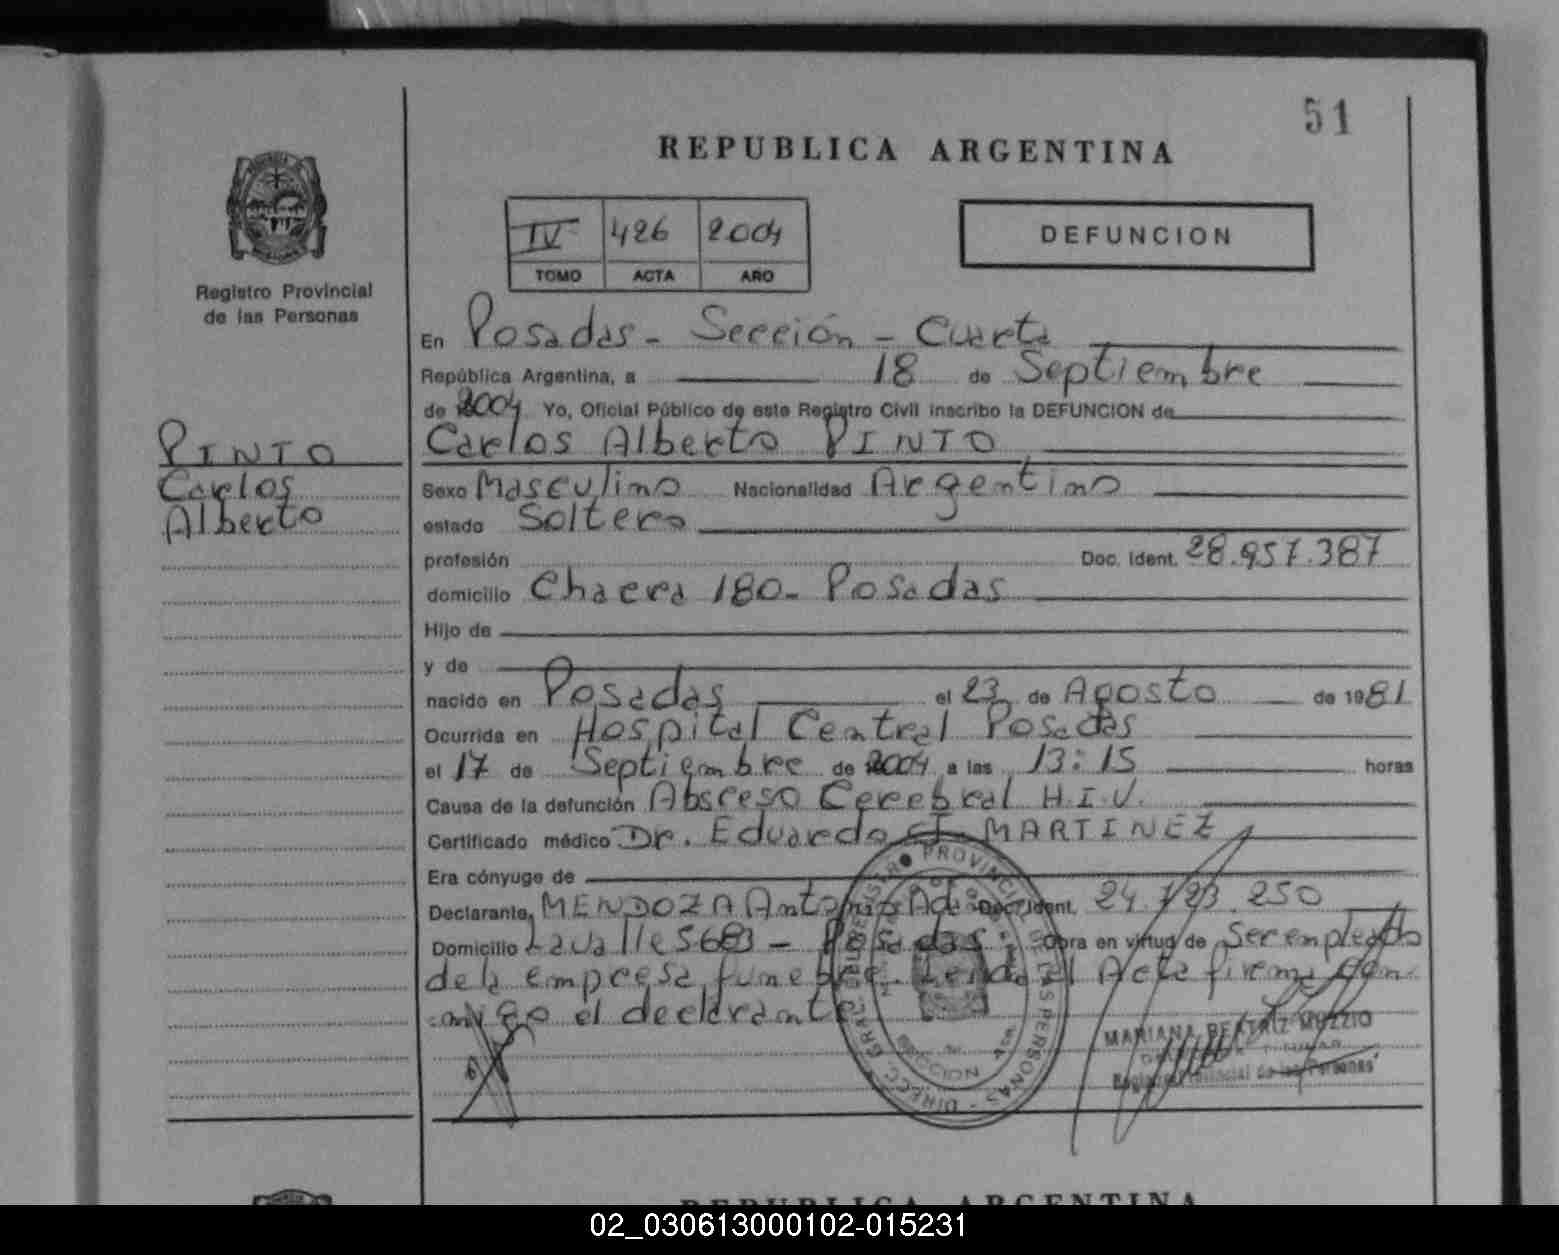 51
REPUBLICA ARGENTINA
IV 426 2004
TOMO ACTA AÑO
DEFUNCION
Registro Provincial
de las Personas
PINTO
Carlos
Alberto
En Posadas - Sección - Cuarta
República Argentina, a 18 de Septiembre
de 2004 Yo, Oficial Público de este Registro Civil inscribo la DEFUNCION de
Carlos Alberto PINTO
Sexo Masculino Nacionalidad Argentino
estado Soltero
profesión Doc. Ident. 28.957.387
domicilio Chacra 180 - Posadas
Hijo de
y de
nacido en Posadas el 23 de Agosto de 1981
Ocurrida en Hospital Central Posadas
el 17 de Septiembre de 2004 a las 13:15 horas
Causa de la defunción Absceso Cerebral H.I.V.
Certificado médico Dr. Eduardo MARTINEZ
Era cónyuge de
Declarante, MENDOZA Antonio Doc. Ident. 24.723.250
Domicilio Lavalle 5683 - Posadas Obra en virtud de Ser empleado
de la empresa funebre. Leida el Acta firma con
migo el declarante
REGISTRO PROVINCIAL DE LAS PERSONAS - DIRECC. GRAL. DEL
MARIANA BEATRIZ MUZZIO
Registro Provincial de las Personas
REPUBLICA ARGENTINA
02_030613000102-015231